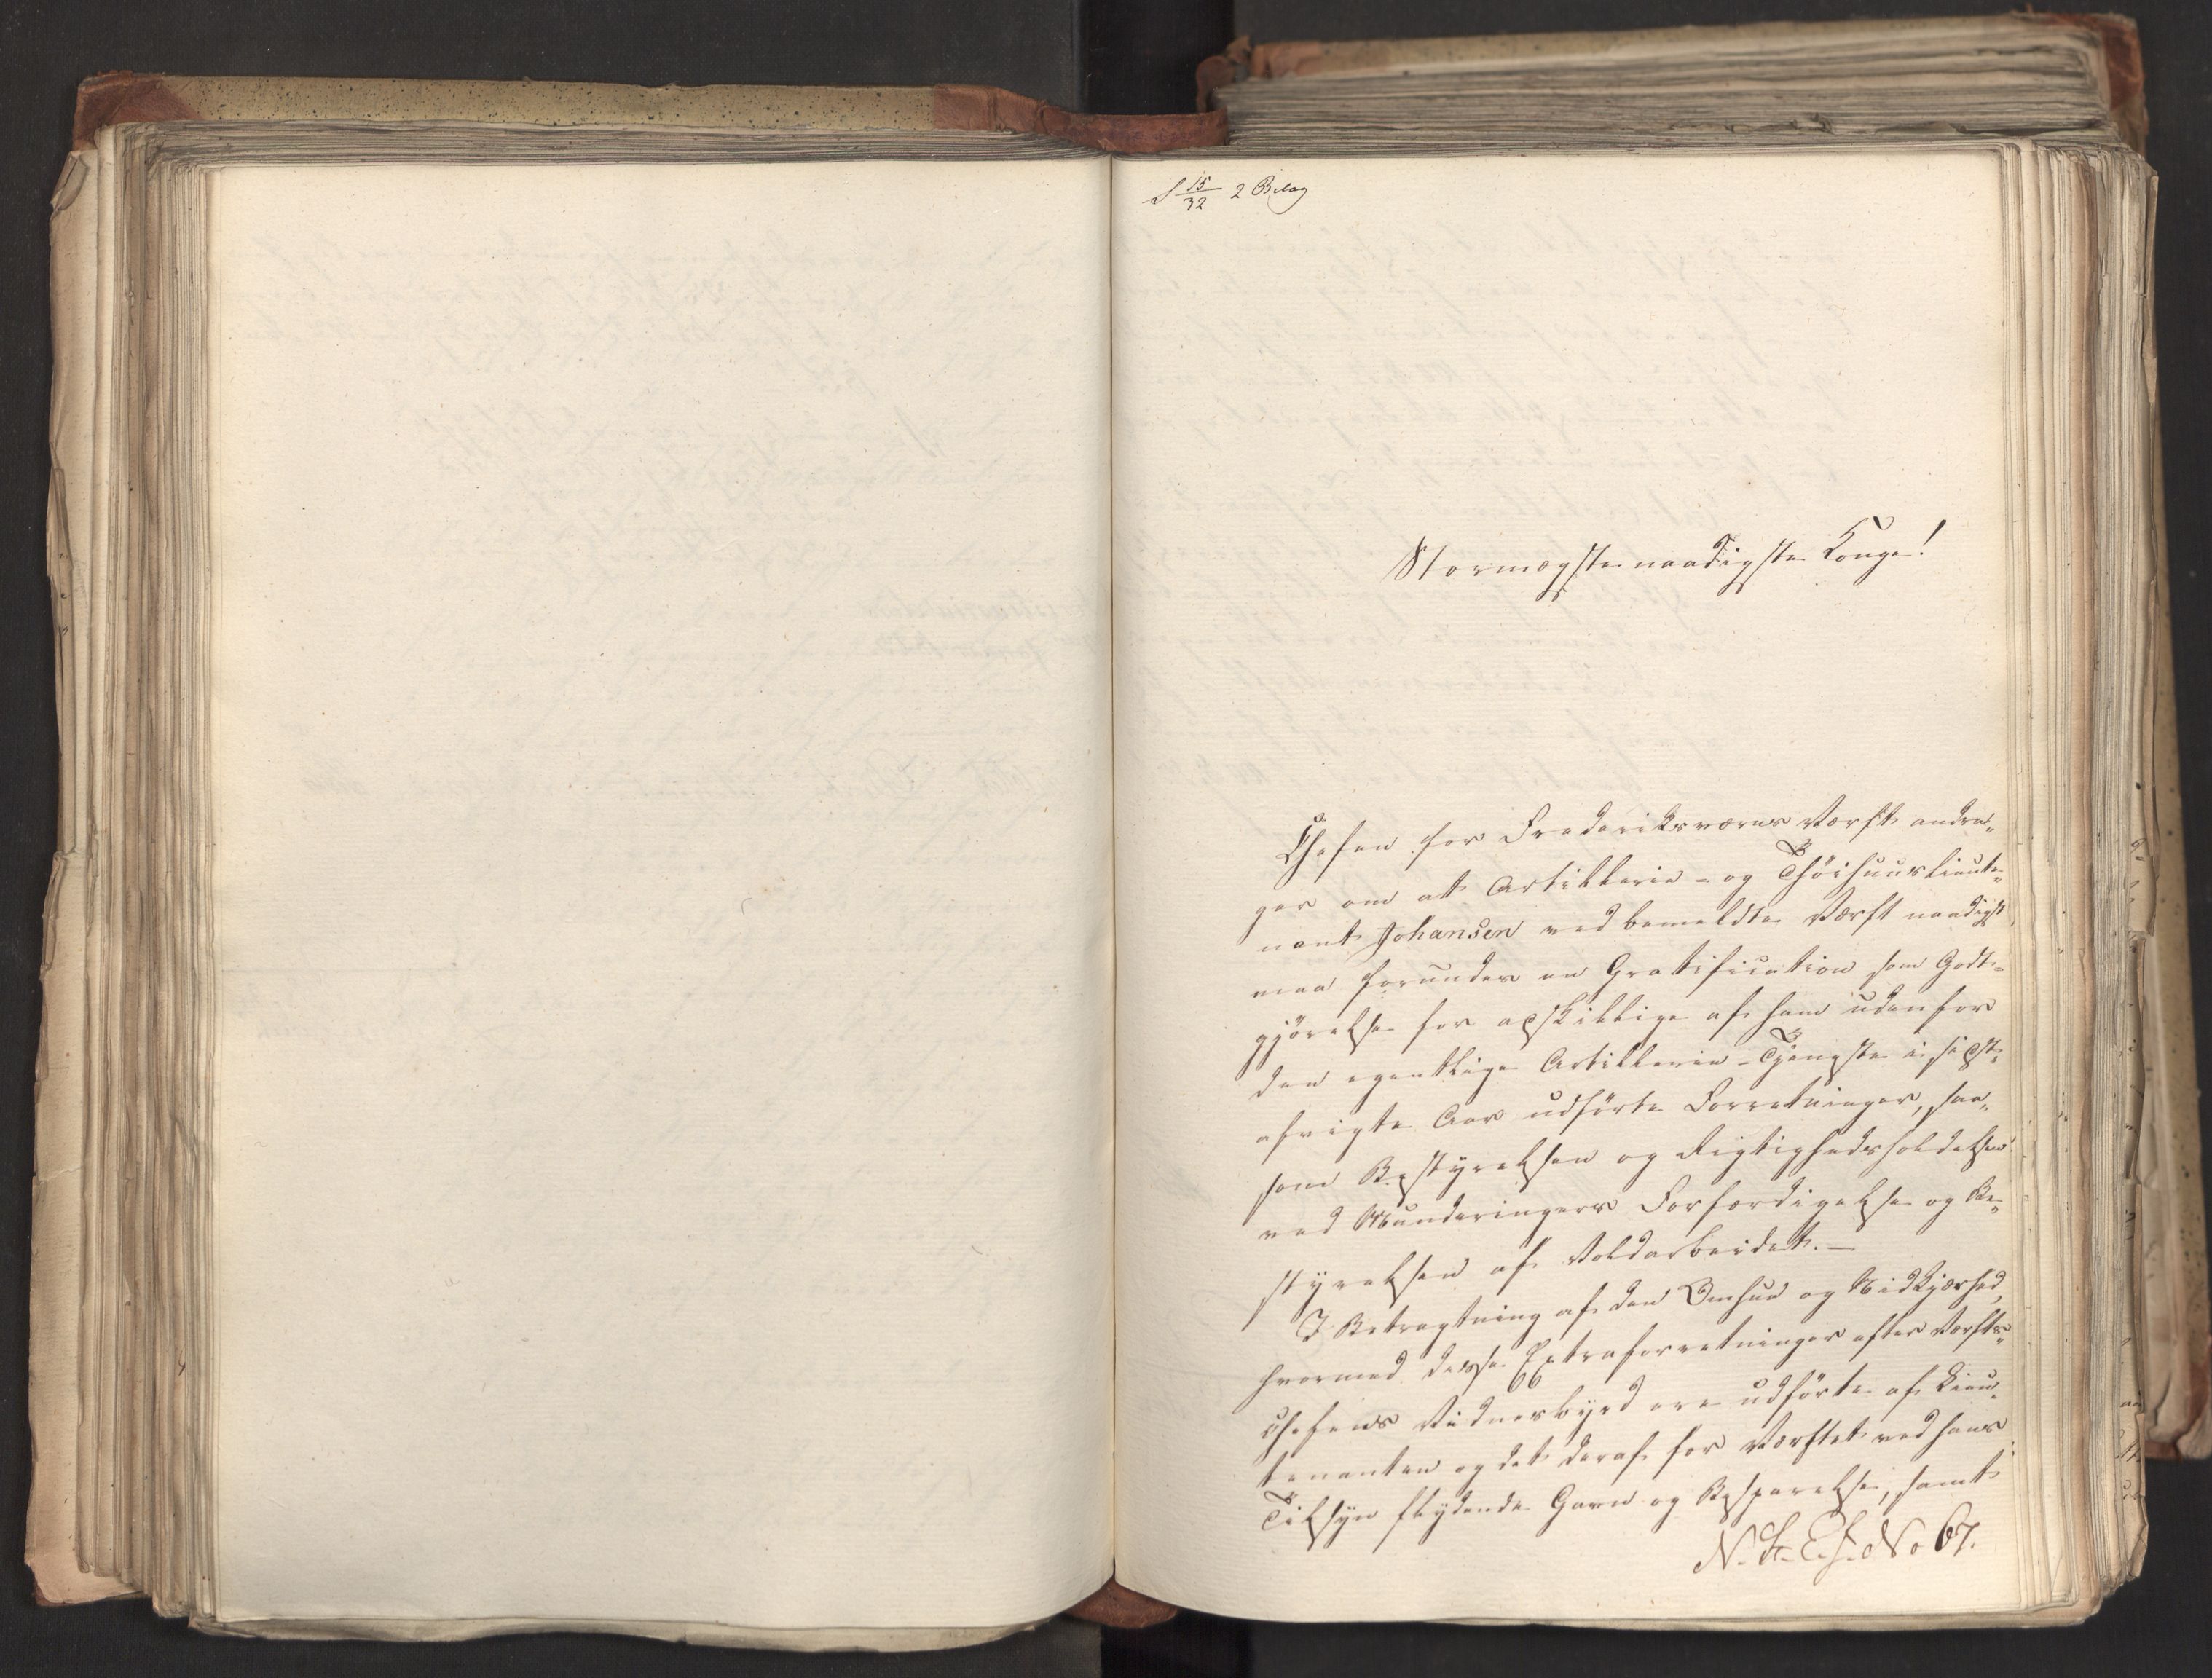 15/32 2 Bilag
Stormægtigste naadigste Konge!
Chefen for Frederiksværns Værft andra„
ger om at Artillerie- og Tøihuuslieute„
nant Johansen ved bemeldte Værft naadigst
maa forundes en Gratification som Godt„
gjörelse for adskillige af ham udenfor
den egentlige Artillerie-Tjeneste i sidst„
afvigte Aar udförte Forretninger, saa„
som Bestyrelsen og Rigtighedsholdelsen
ved Munderingers Forfærdigelse og Be„
styrelsen af Voldarbeidet.—
I Betragtning af den Omhue og Nidkjærhed,
hvormed disse Extraforretninger efter Værfts„
Chefens Vidnesbyrd ere udförte af Lieu„
tenanten og det deraf for Værftet ved hans
Tilsyn flydende Gavn og Besparelse, samt
N. St. E. f. No 67.